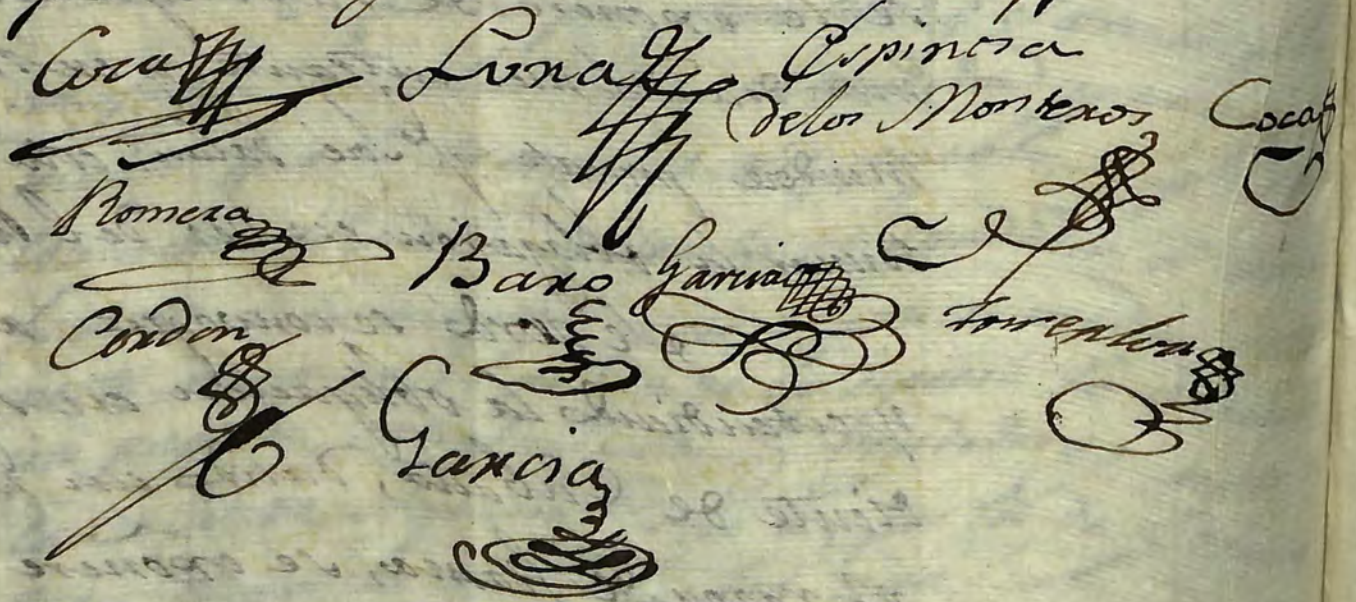 Coca Luna Espinosa
de los Monteros Coca
Romera Baro Garcia
Cordon Torralva
Garcia